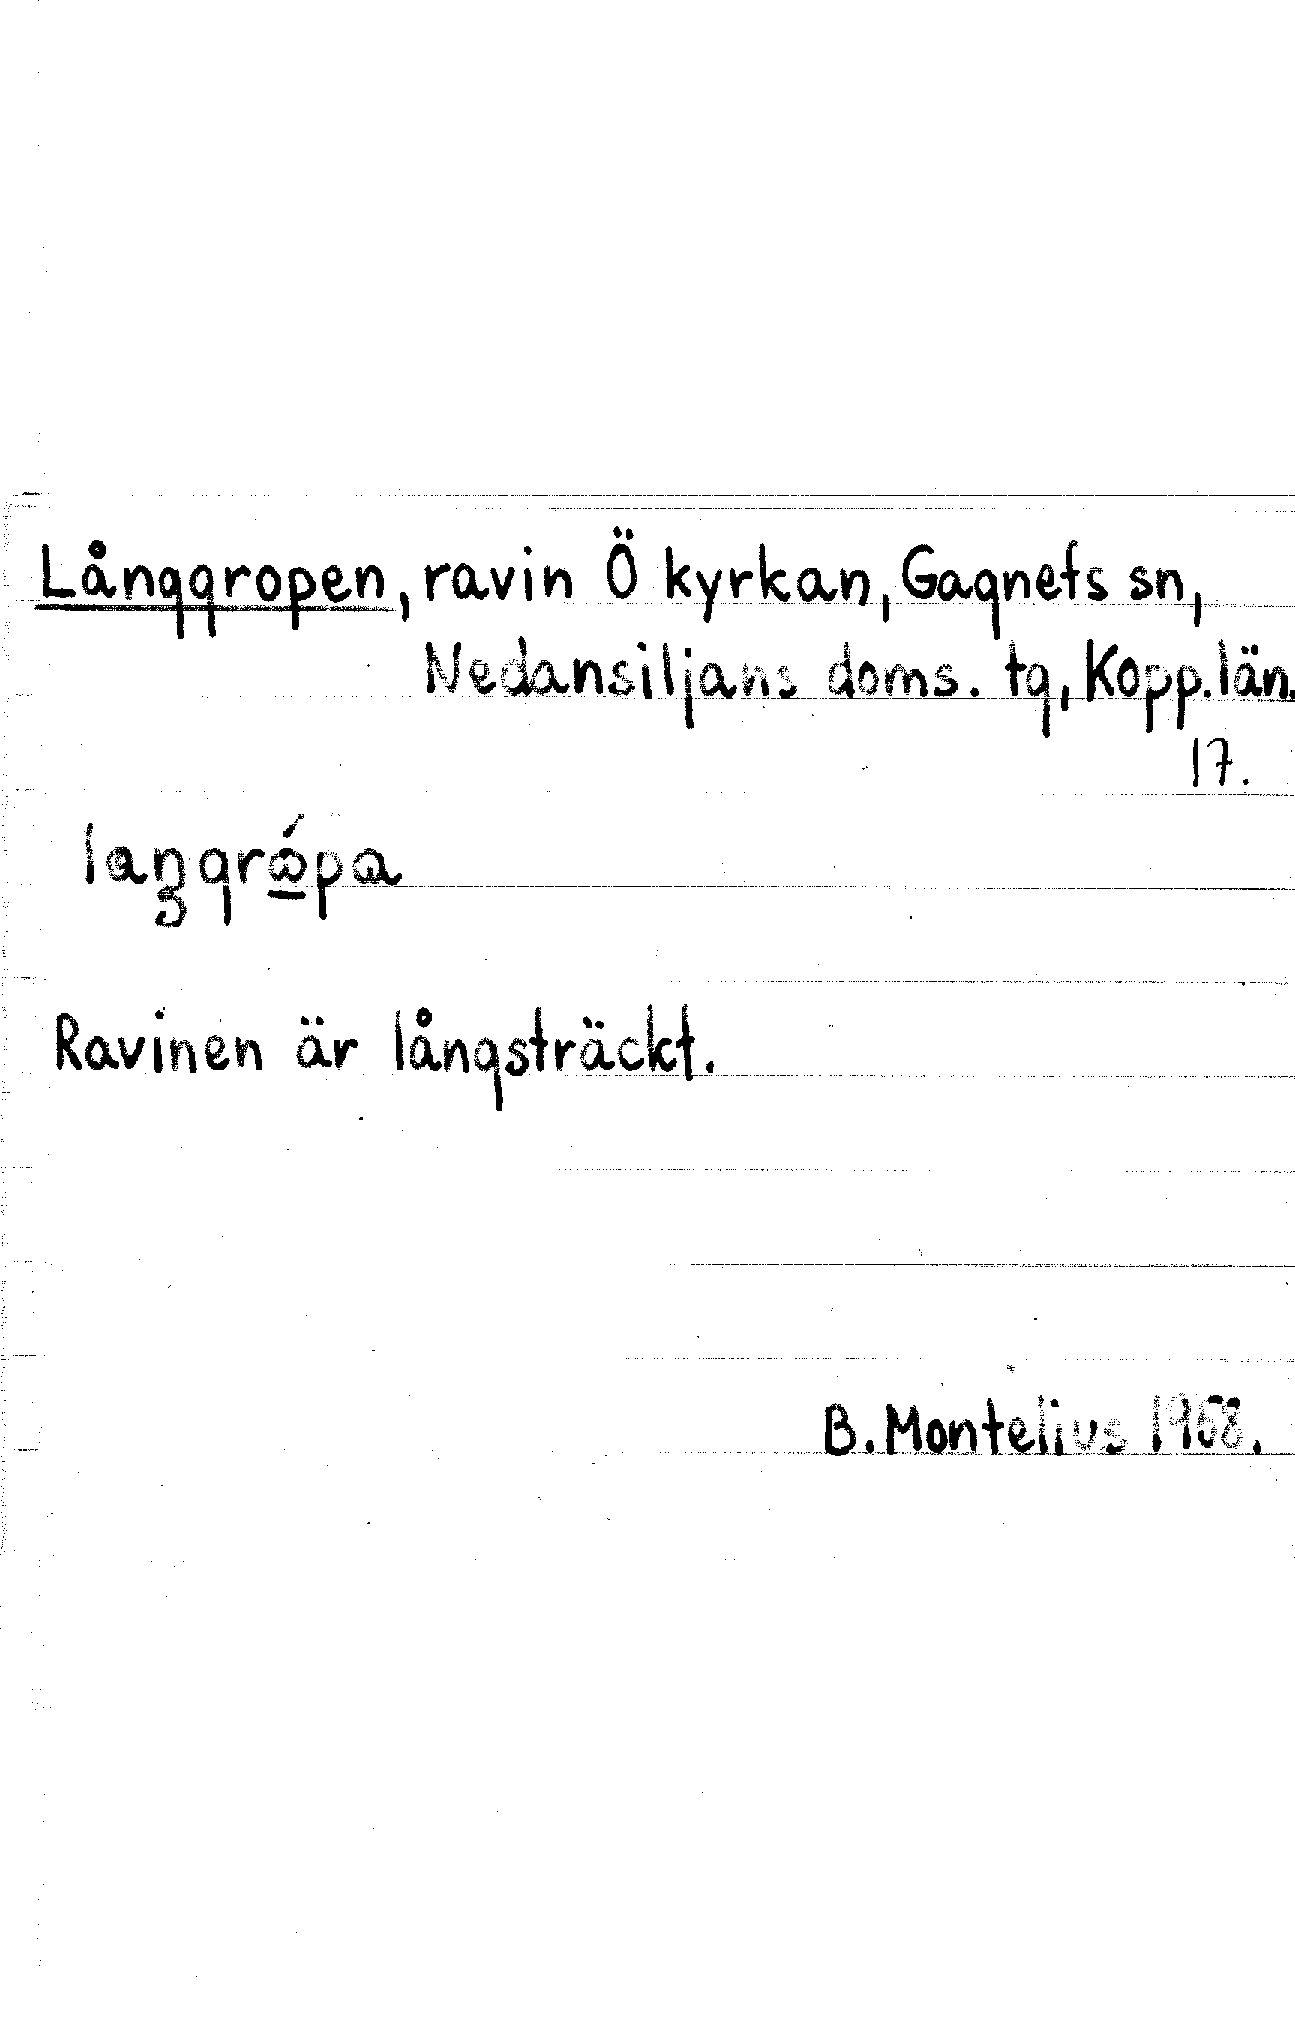 Långgropen, ravin Ö kyrkan, Gagnefs sn,
Nedansiljans doms. tg, Kopp. län.
17.
Ravinen är långsträckt.
B. Montelius 1958.